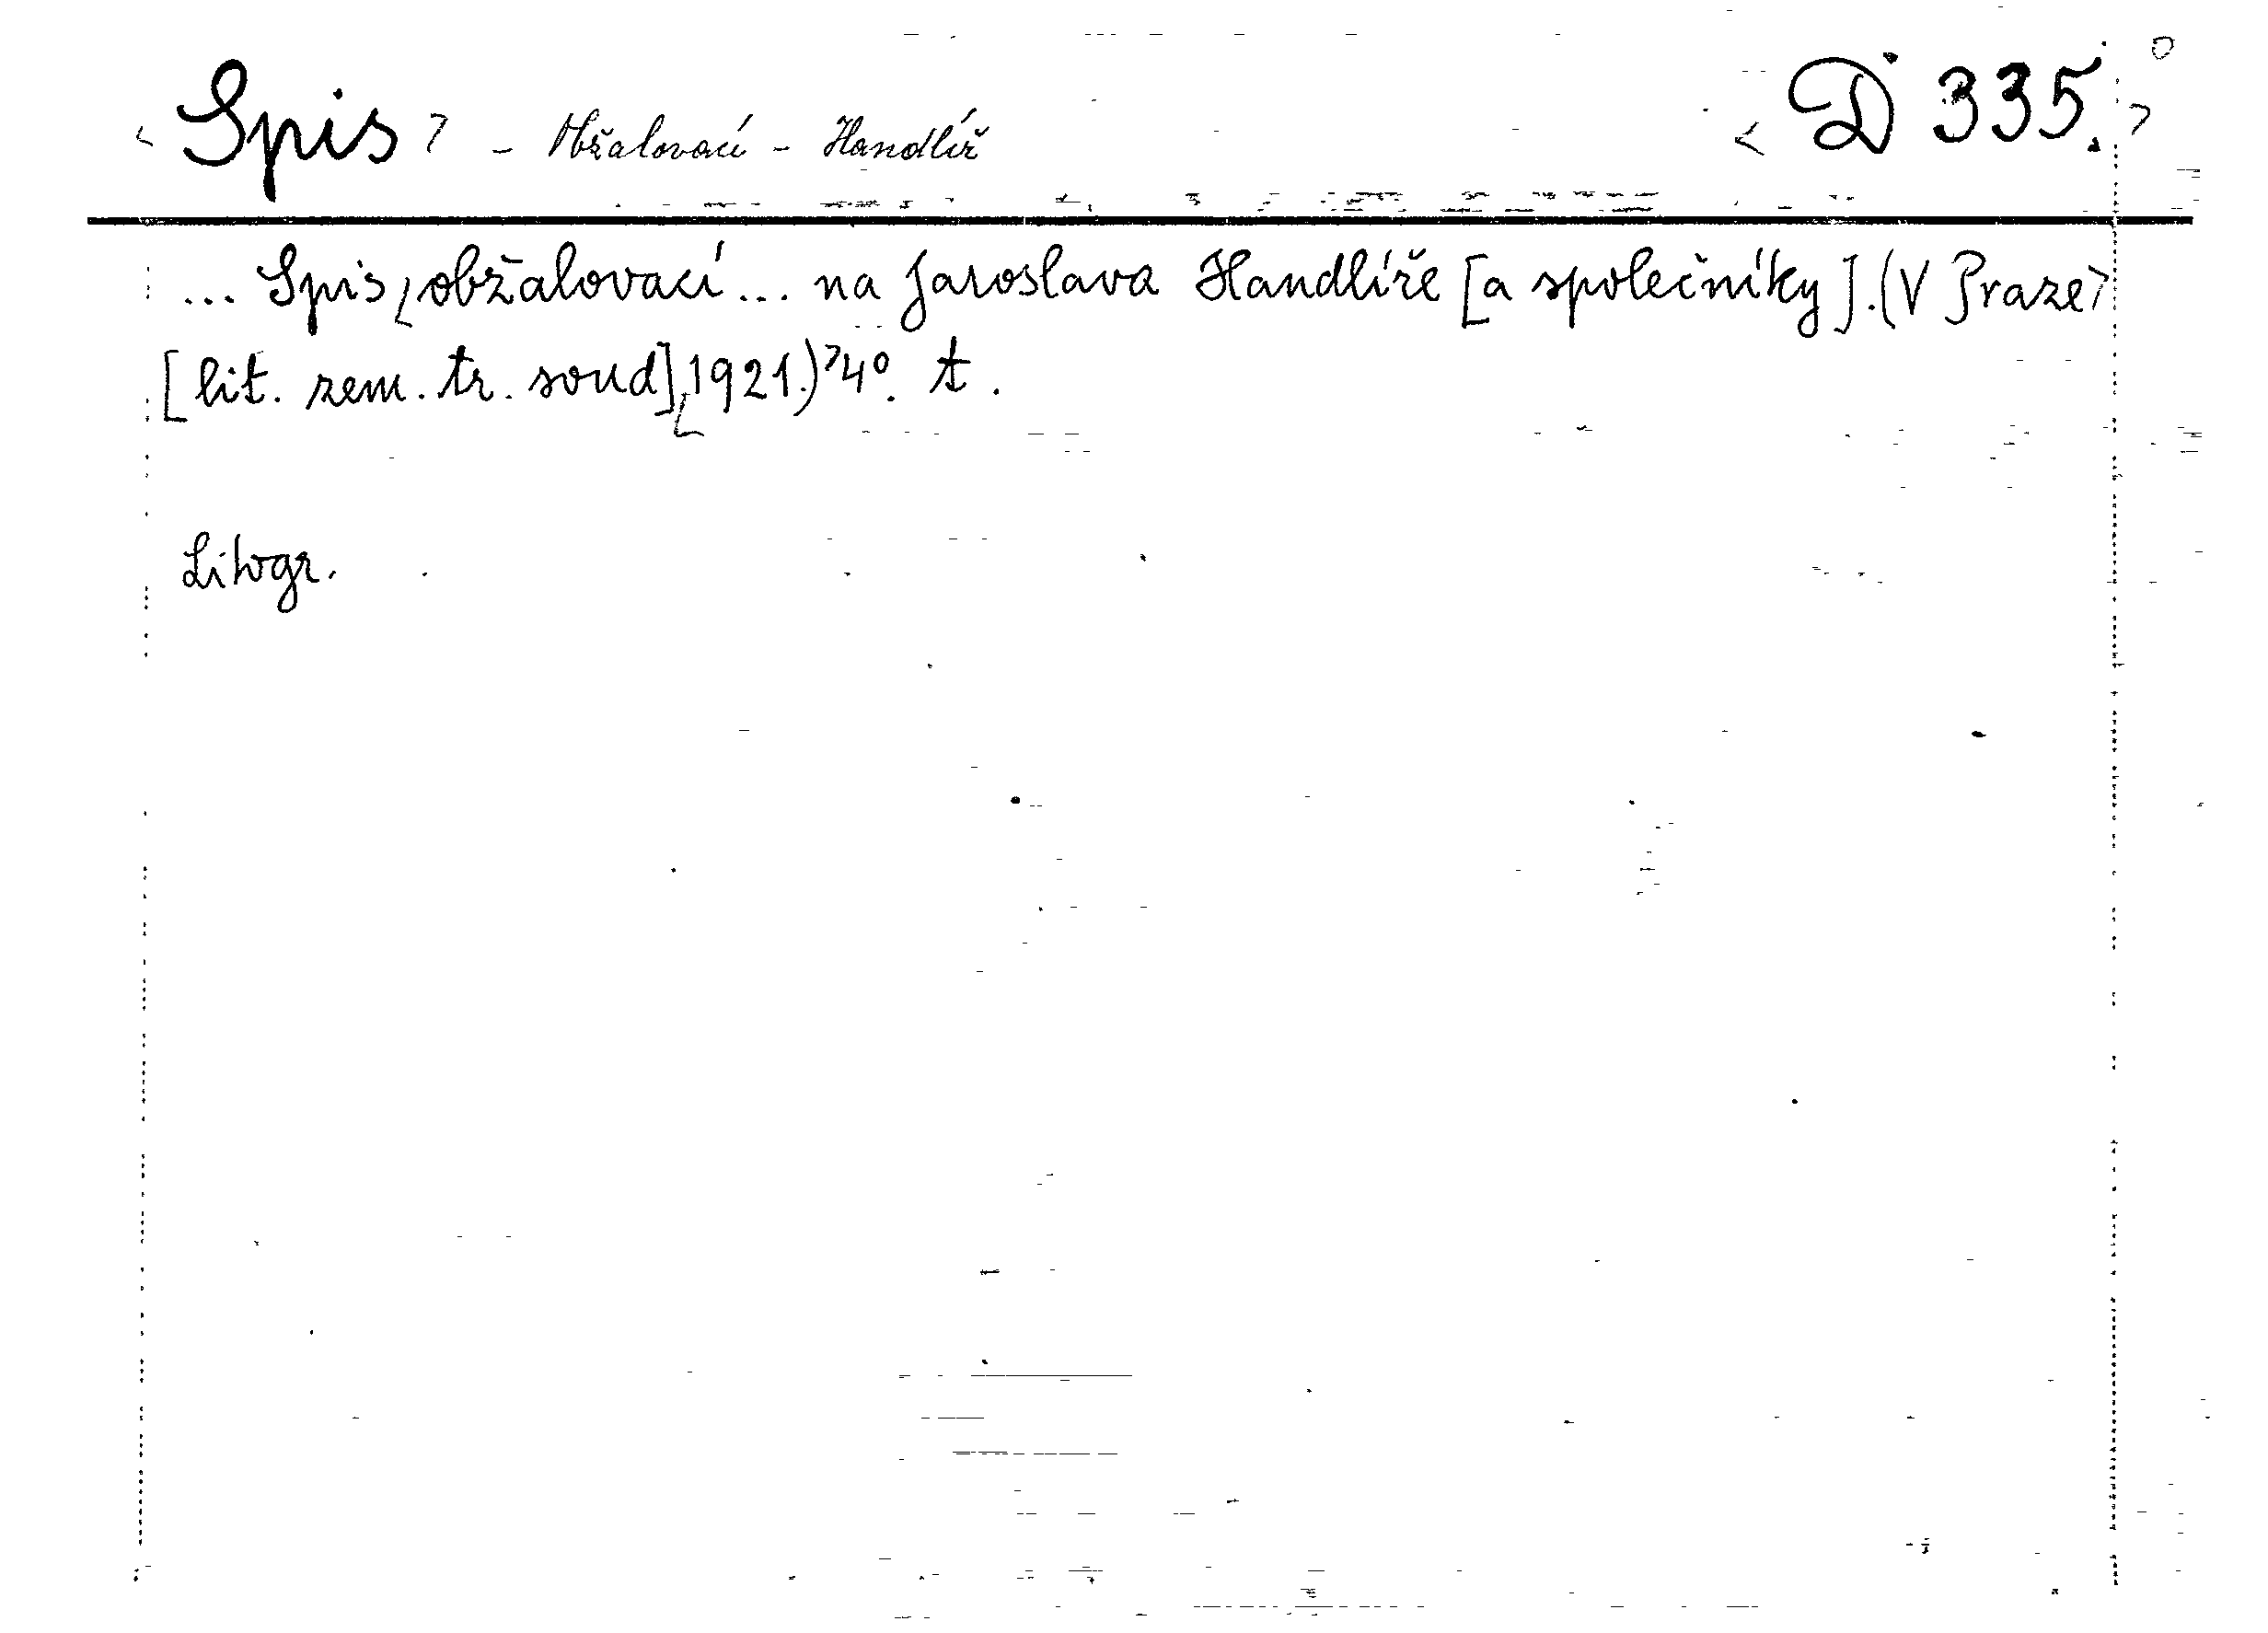 <Spis> - Obžalovací - Handlíř <D 335.>
... Spis obžalovací ... na Jaroslava Handlíře [a společníky]. (V Praze>
[lit. zem. tr. soud] 1921.) 4°. t.
Litogr.